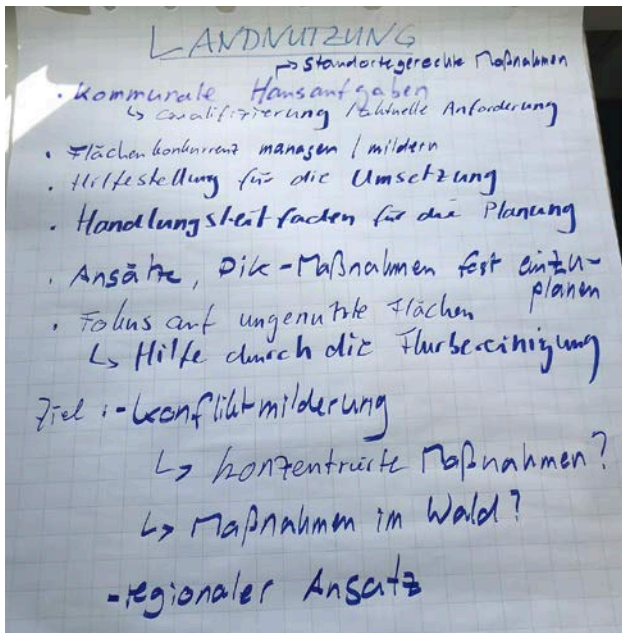 LANDNUTZUNG
→ Standortgerechte Maßnahmen
• Kommunale Hausaufgaben
↳ Qualifizierung / Aktuelle Anforderung
• Flächenkonkurrenz managen / mildern
• Hilfestellung für die Umsetzung
• Handlungsleitfaden für die Planung
• Ansätze, PiK-Maßnahmen fest einzu-
planen
• Fokus auf ungenutzte Flächen
↳ Hilfe durch die Flurbereinigung
Ziel: - Konfliktmilderung
↳ konzentrierte Maßnahmen?
↳ Maßnahmen im Wald?
- regionaler Ansatz